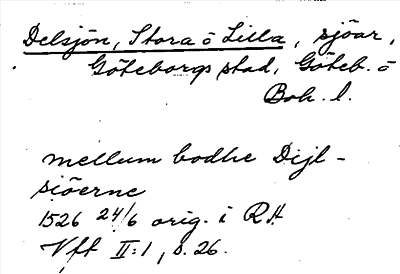 Delsjön, Stora o Lilla, sjöar,
Göteborgs stad, Göteb. o
Boh. l.
mellum bodhe Dijl-
siöerne
1526 24/6 orig. i RA
Vft II:1, s. 26.